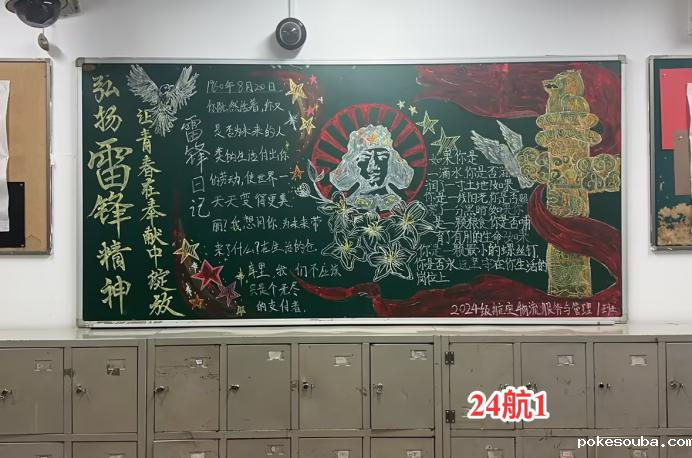 弘扬雷锋精神
让青春在奉献中绽放
雷锋日记
1960年8月20日
你既然活着，你又
是否为未来的人
类的生活付出你
的劳动，使世界一
天天变得更美
丽？我想问你，为未来带
来了什么？在生活的仓
库里，我们不应该
只是个无尽
的支付者。
如果你是
一滴水你是否滋
润了一寸土地如果
你是一线阳光你是否照
亮了一分黑暗如果
你是一颗粮食你是否哺
育了有用的生命如果
你是一颗最小的螺丝钉
你是否永远坚守在你生活的
岗位上
2024级航空物流服务与管理1班
24航1
pokesouba.com